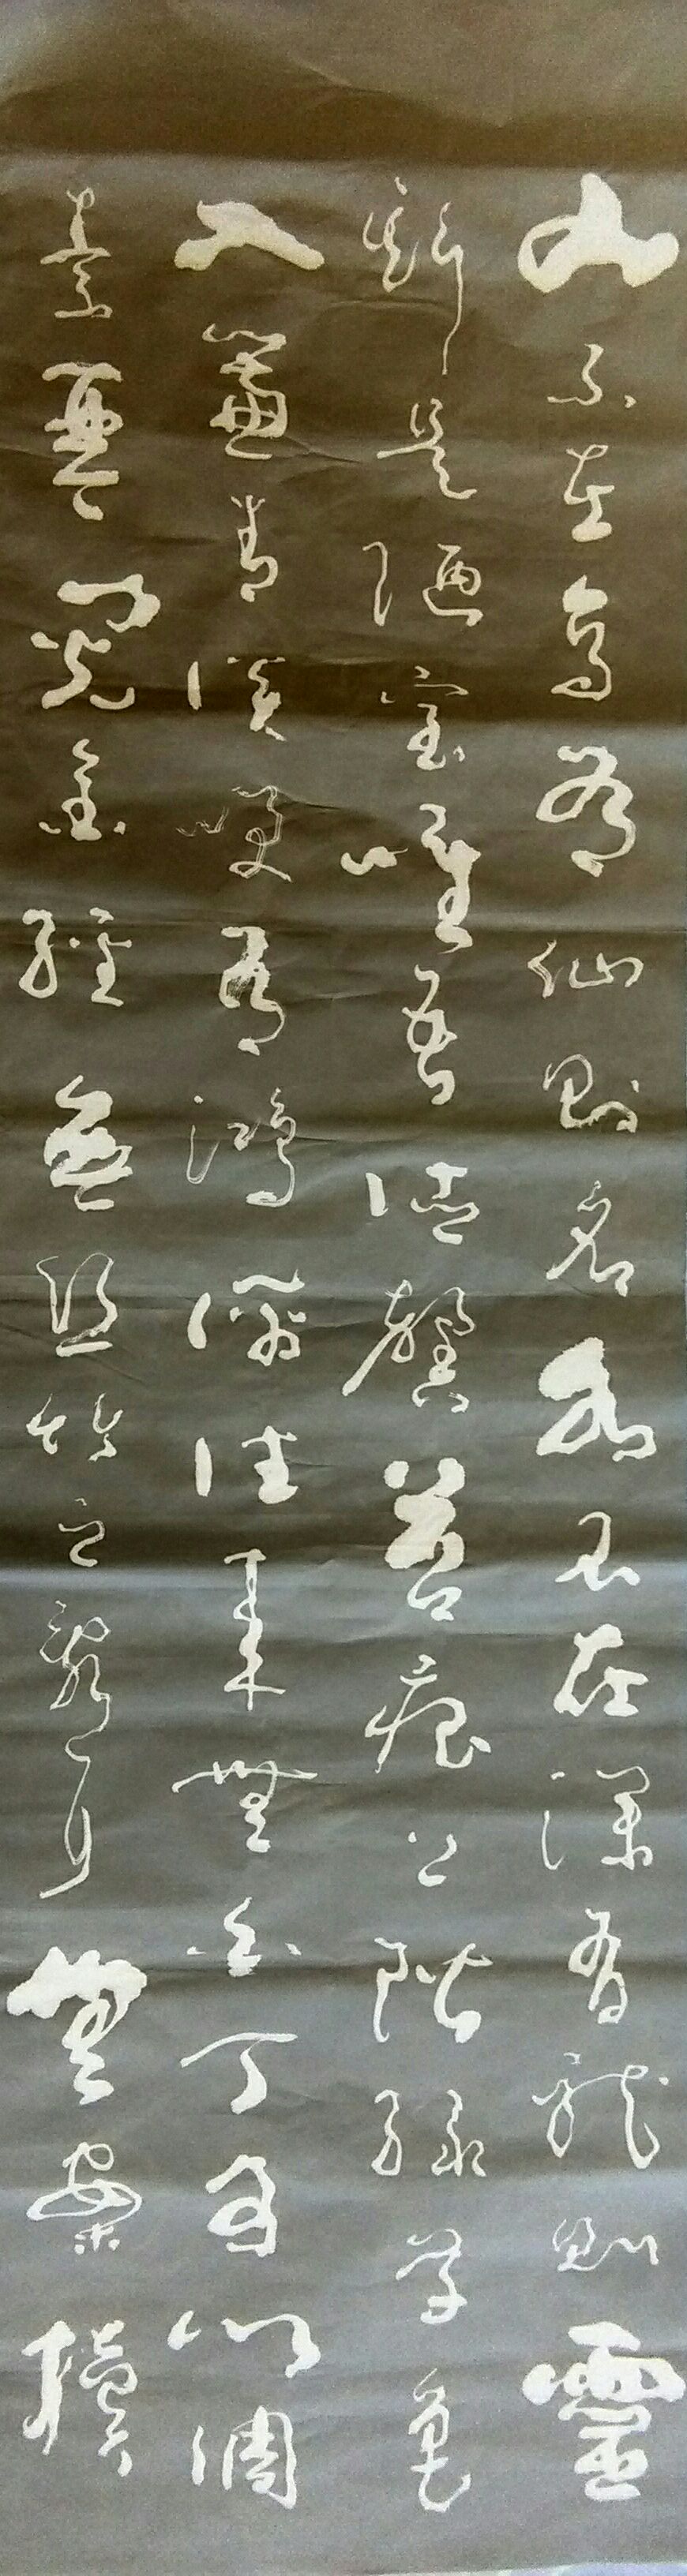 山不在高有仙則名水不在深有龍則靈
斯是陋室唯吾德馨苔痕上階緑草色
入簾青談笑有鴻儒往來無白丁可以調
素琴閱金經無絲竹之亂耳無案牘